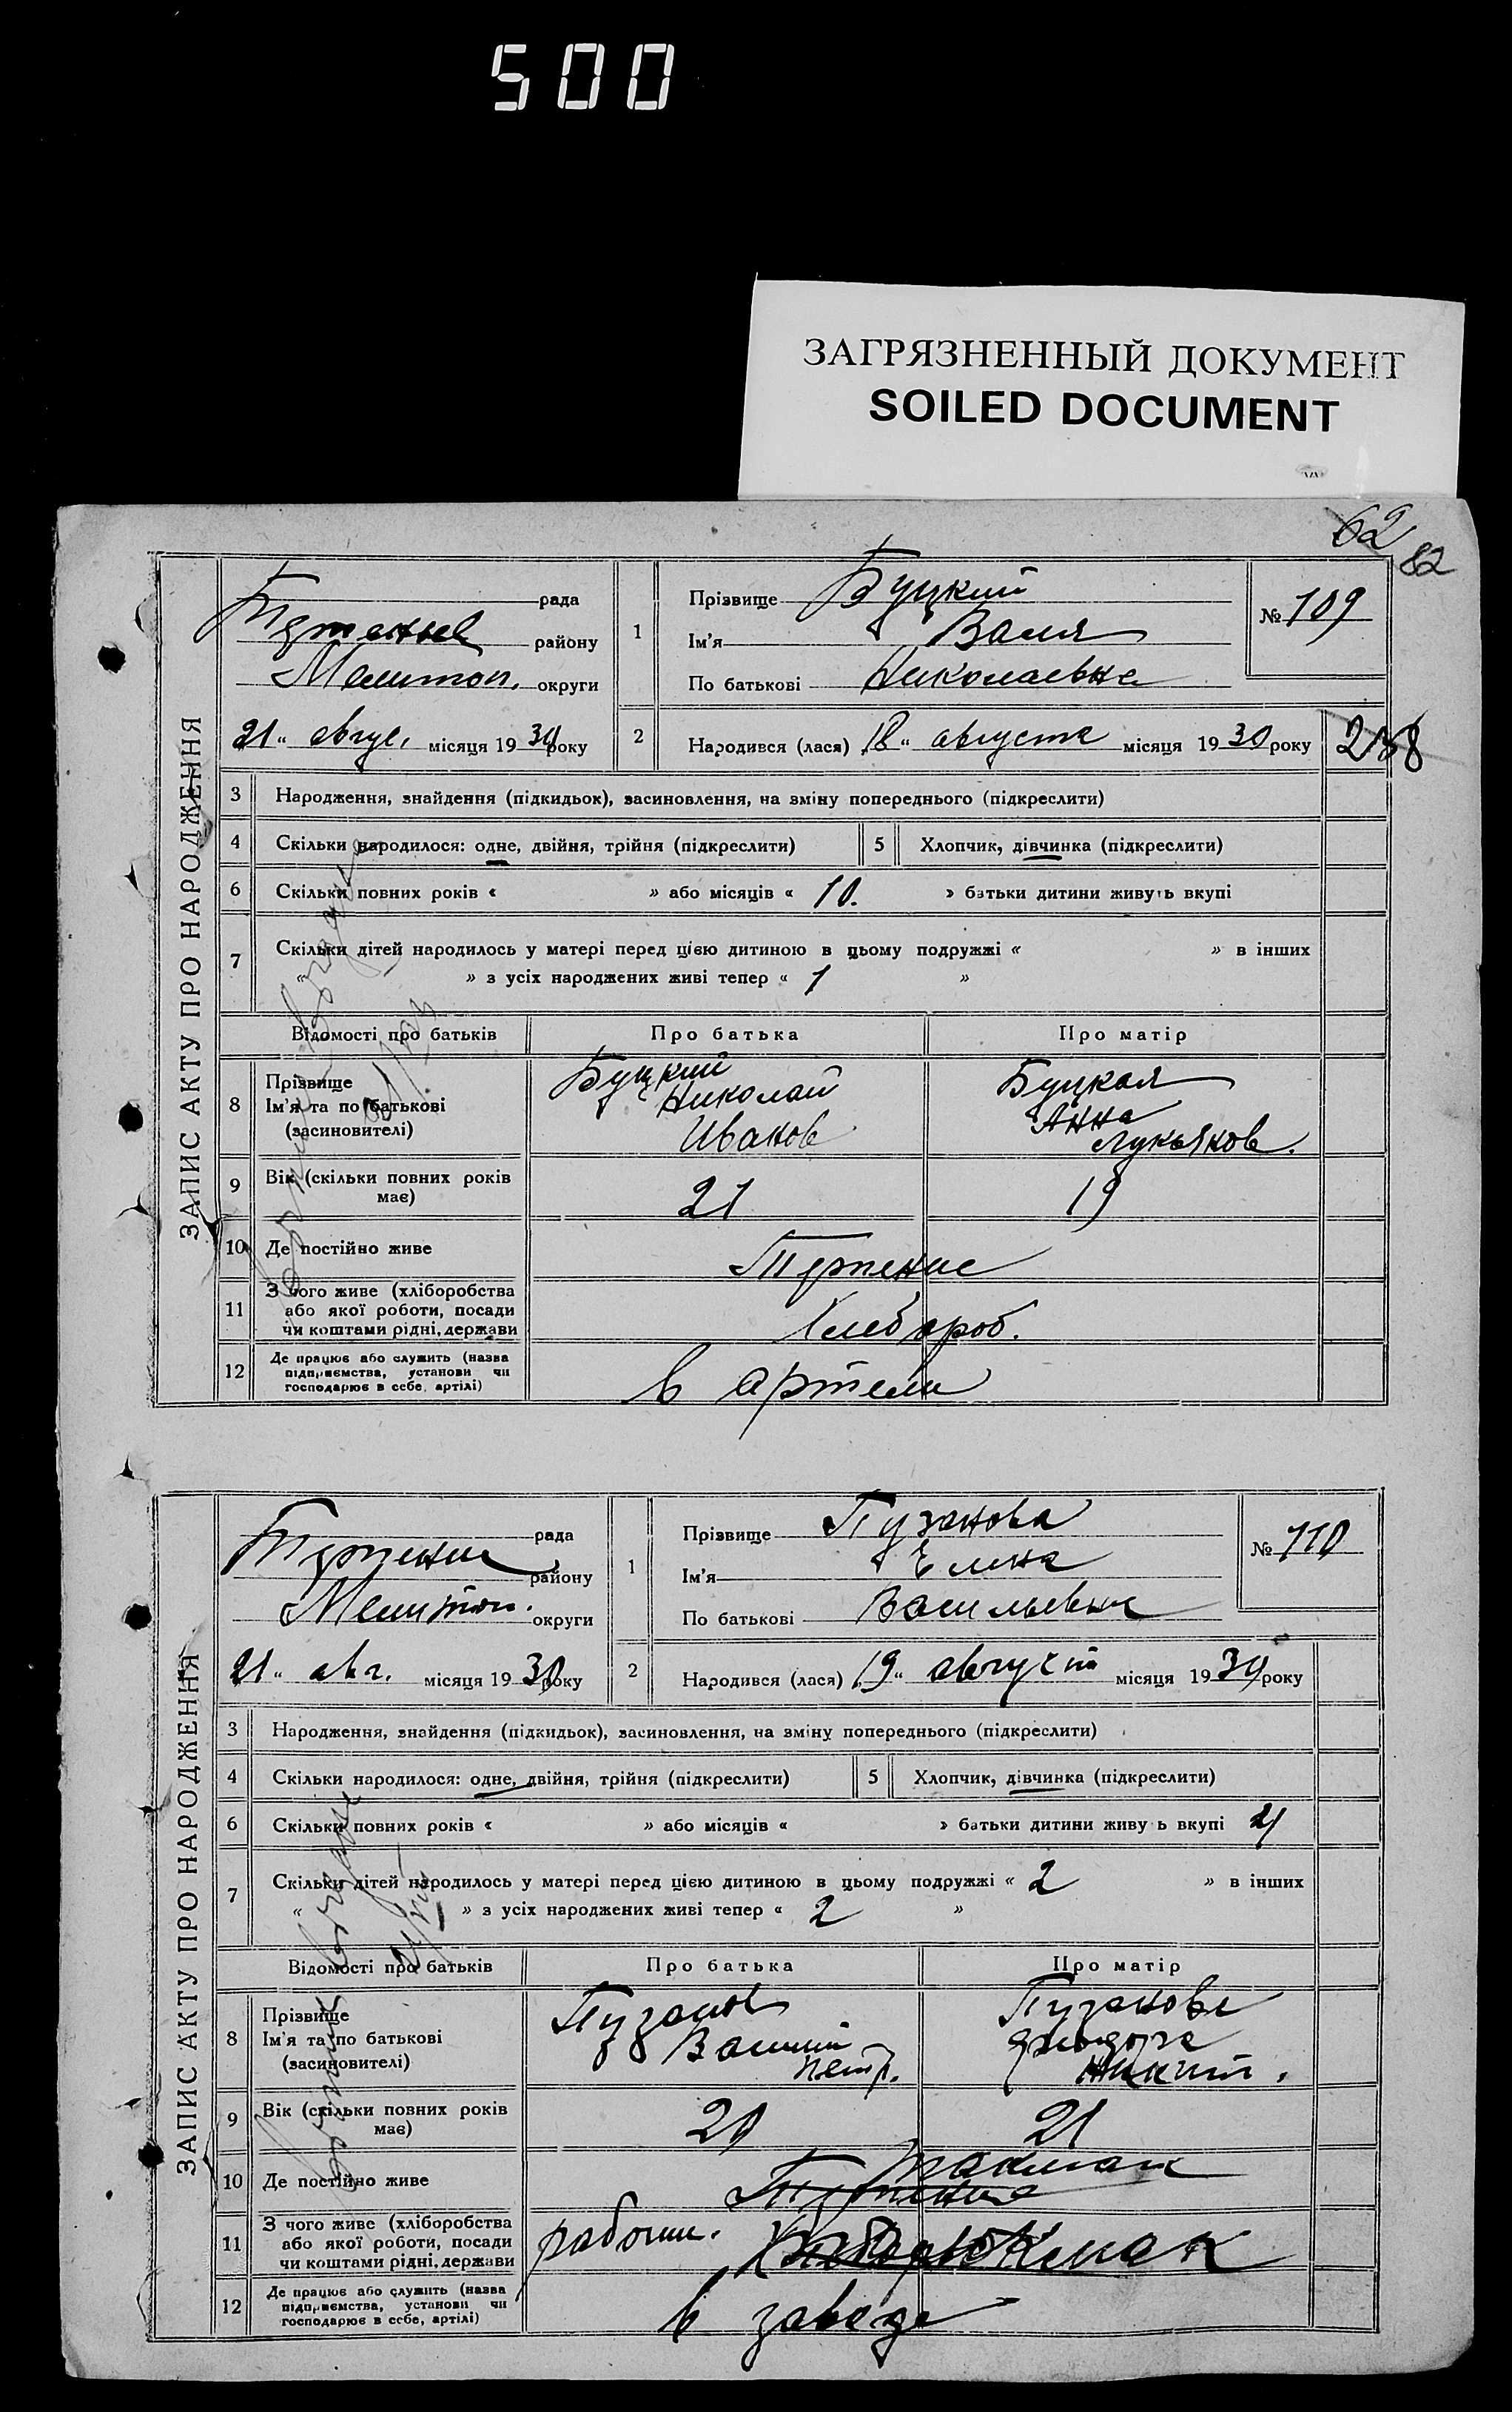 500
ЗАГРЯЗНЕННЫЙ ДОКУМЕНТ
SOILED DOCUMENT
62
82
ЗАПИС АКТУ ПРО НАРОДЖЕННЯ
рада
району
Мелитоп. округи
21 " авгус. місяця 1930 року
1
Прізвище Буцкий
Ім'я Валя
По батькові Николаевна
№ 109
2 Народився (лася) 18 " августа місяця 1930 року
3 Народження, знайдення (підкидьок), засиновлення, на зміну попереднього (підкреслити)
4 Скільки народилося: одне, двійня, трійня (підкреслити) 5 Хлопчик, дівчинка (підкреслити)
6 Скільки повних років « » або місяців « 10. » батьки дитини живуть вкупі
7 Скільки дітей народилось у матері перед цією дитиною в цьому подружжі « » в інших
« » з усіх народжених живі тепер « 1 »
Відомості про батьків Про батька Про матір
8 Прізвище
Ім'я та по батькові
(засиновителі)
Буцкий
Николай
Иванов
Буцкая
Анна
Лукьянов.
9 Вік (скільки повних років має) 21 19
10 Де постійно живе Терпение
11 З чого живе (хліборобства
або якої роботи, посади
чи коштами рідні, держави
Хлебороб.
12 Де працює або служить (назва
підприємства, установи чи
господарює в себе, артілі)
в артели
ЗАПИС АКТУ ПРО НАРОДЖЕННЯ
рада
Терпение району
Мелитоп. округи
21 " авг. місяця 1930 року
1
Прізвище Пузанова
Ім'я Елена
По батькові Васильевна
№ 110
2 Народився (лася) 19 " август місяця 1930 року
3 Народження, знайдення (підкидьок), засиновлення, на зміну попереднього (підкреслити)
4 Скільки народилося: одне, двійня, трійня (підкреслити) 5 Хлопчик, дівчинка (підкреслити)
6 Скільки повних років « » або місяців « » батьки дитини живуь вкупі
7 Скільки дітей народилось у матері перед цією дитиною в цьому подружжі « 2 » в інших
« » з усіх народжених живі тепер « 2 »
Відомості про батьків Про батька Про матір
8 Прізвище
Ім'я та по батькові
(засиновителі)
Пузанов
Василий
Петр.
Пузанова
Никит.
9 Вік (скільки повних років має) 20 21
10 Де постійно живе Терпение
11 З чого живе (хліборобства
або якої роботи, посади
чи коштами рідні, держави
рабочий.
12 Де працює або служить (назва
підприємства, установи чи
господарює в себе, артілі)
в заводе